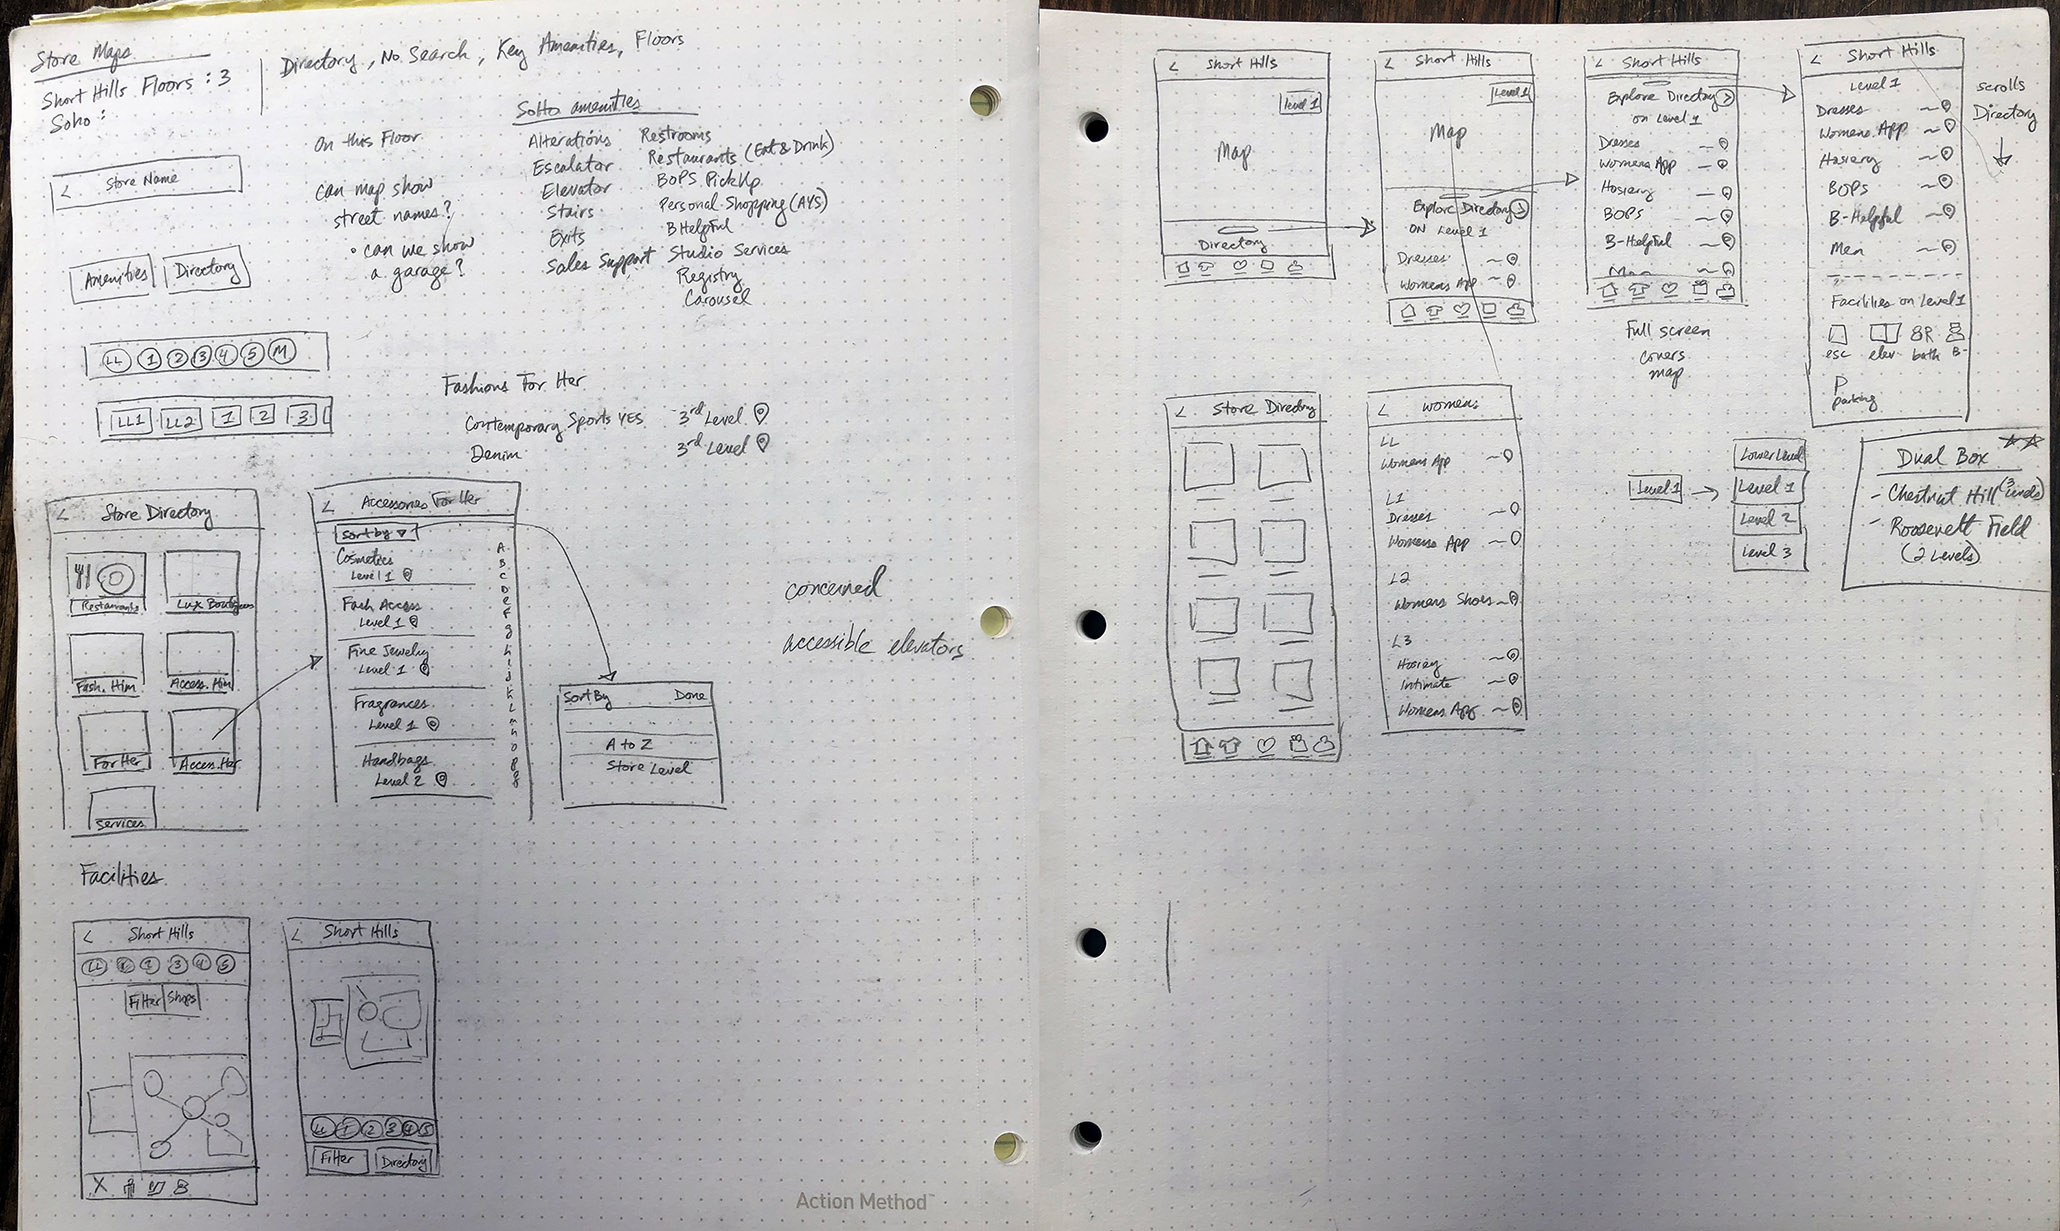 Store Maps
Short Hills Floors : 3
Soho :
Directory, No Search, Key Amenities, Floors
< Store Name
Amenities Directory
LL 1 2 3 4 5 M
LL1 LL2 1 2 3
On this Floor
can map show
street names?
• can we show
a garage?
SoHo amenities
Alterations
Escalator
Elevator
Stairs
Exits
Sales Support
Restrooms
Restaurants (Eat & Drink)
BOPS PickUp
Personal Shopping (AYS)
BHelpful
Studio Services
Registry
Carousel
Fashions For Her
Contemporary Sports YES 3rd Level
Denim 3rd Level
< Store Directory
Restaurants
Lux Boutiques
Fash. Him
Access. Him
For Her
Access. Her
Services
< Accessories For Her
Sort by
Cosmetics
Level 1
Fash Access
Level 1
Fine Jewelry
Level 1
Fragrances
Level 1
Handbags
Level 2
A
B
C
D
e
f
g
h
i
j
k
l
m
n
o
p
q
Sort By Done
A to Z
Store Level
concerned
accessible elevators
Facilities
< Short Hills
LL 1 2 3 4 5
Filter Shops
X
< Short Hills
LL 1 2 3 4 5
Filter Directory
Action Method™
< Short Hills
Level 1
Map
Directory
< Short Hills
Level 1
Map
Explore Directory >
ON Level 1
Dresses
Womens App
< Short Hills
Explore Directory >
on Level 1
Dresses
Womens App
Hosiery
BOPS
B-Helpful
Men
Full screen
covers
map
< Short Hills
Level 1
Dresses
Womens App
Hosiery
BOPS
B-Helpful
Men
Facilities on Level 1
esc elev bath B-
P
parking
scrolls
Directory
< Store Directory
< womens
LL
Womens App
L1
Dresses
Womens App
L2
Womens Shoes
L3
Hosiery
Intimate
Womens App
Level 1
Lower Level
Level 1
Level 2
Level 3
Dual Box
- Chestnut Hill (3 levels)
- Roosevelt Field
(2 Levels)